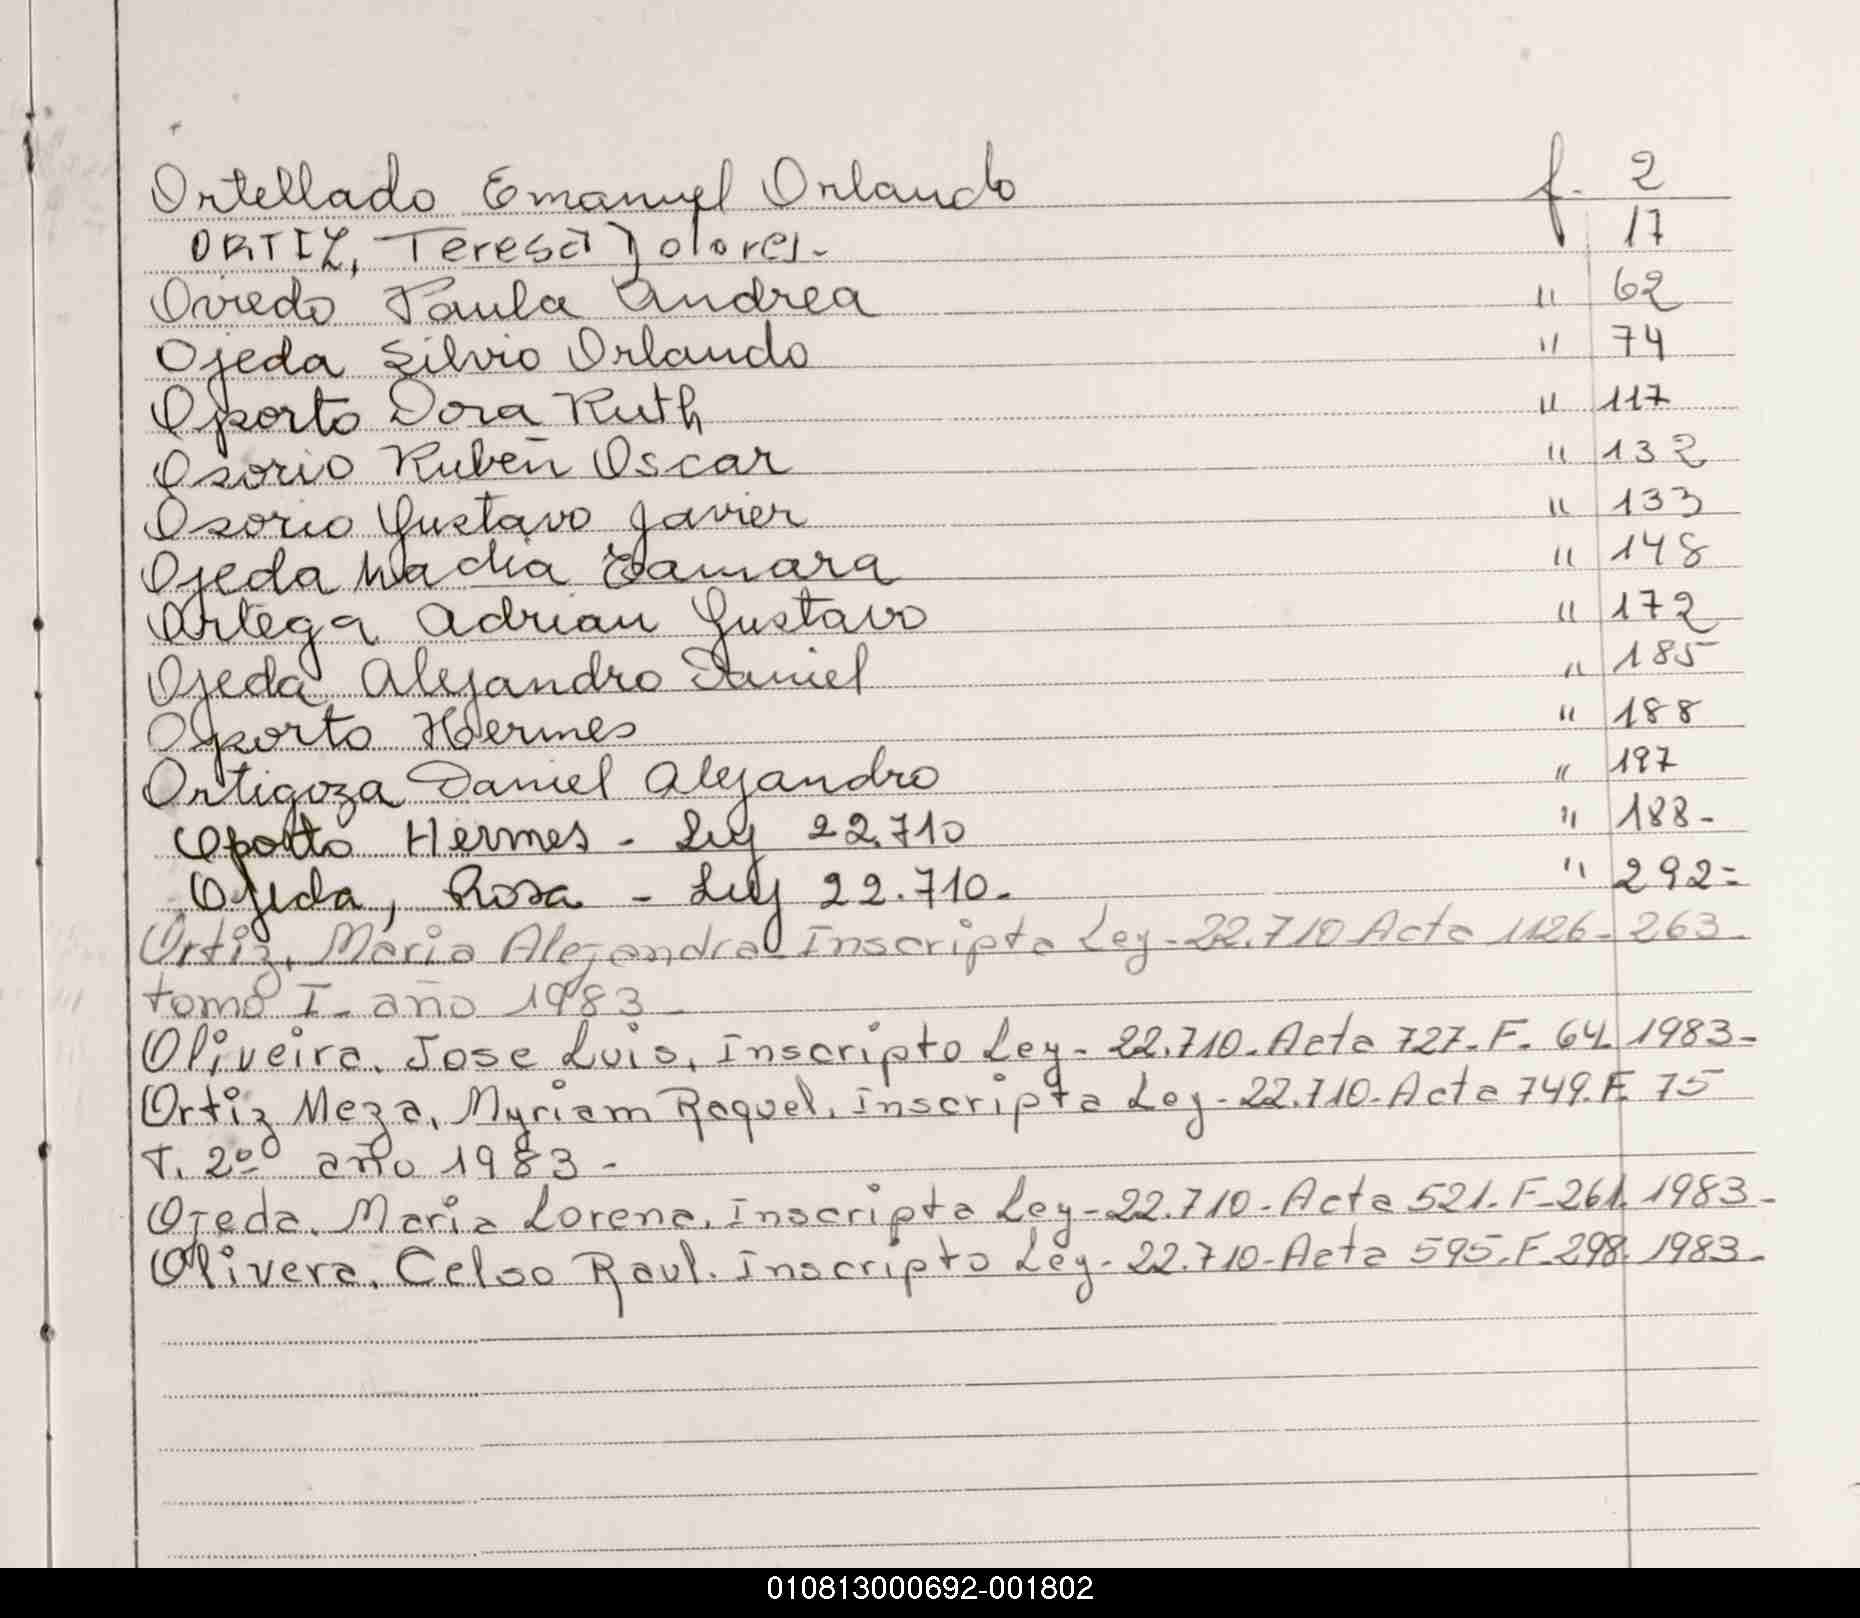 Ortellado Emanuel Orlando f. 2
ORTIZ, Teresa Dolores.- 17
Oviedo Paula Andrea " 62
Ojeda Silvio Orlando " 74
Oporto Dora Ruth " 117
Osorio Rubén Oscar " 132
Osorio Gustavo Javier " 133
Ojeda Nadia Tamara " 148
Ortega Adrian Gustavo " 172
Ojeda Alejandro Daniel " 185
Oporto Hermes " 188
Ortigoza Daniel Alejandro " 197
Oporto Hermes - Ley 22.710 " 188-
Ojeda, Rosa - Ley 22.710. " 292=
Ortiz, Maria Alejandra Inscripta Ley-22.710 Acta 1126-263-
tomo I- año 1983-
Oliveira, Jose Luis, Inscripto Ley- 22.710. Acta 727. F. 64. 1983-
Ortiz Meza, Myriam Raquel, inscripta Ley-22.710-Acta 749. F. 75
T. 2º año 1983-
Ojeda, Maria Lorena, Inscripta Ley-22.710-Acta 521. F-261. 1983-
Olivera, Celso Raul. Inscripto Ley-22.710-Acta 595.F-298. 1983-
010813000692-001802